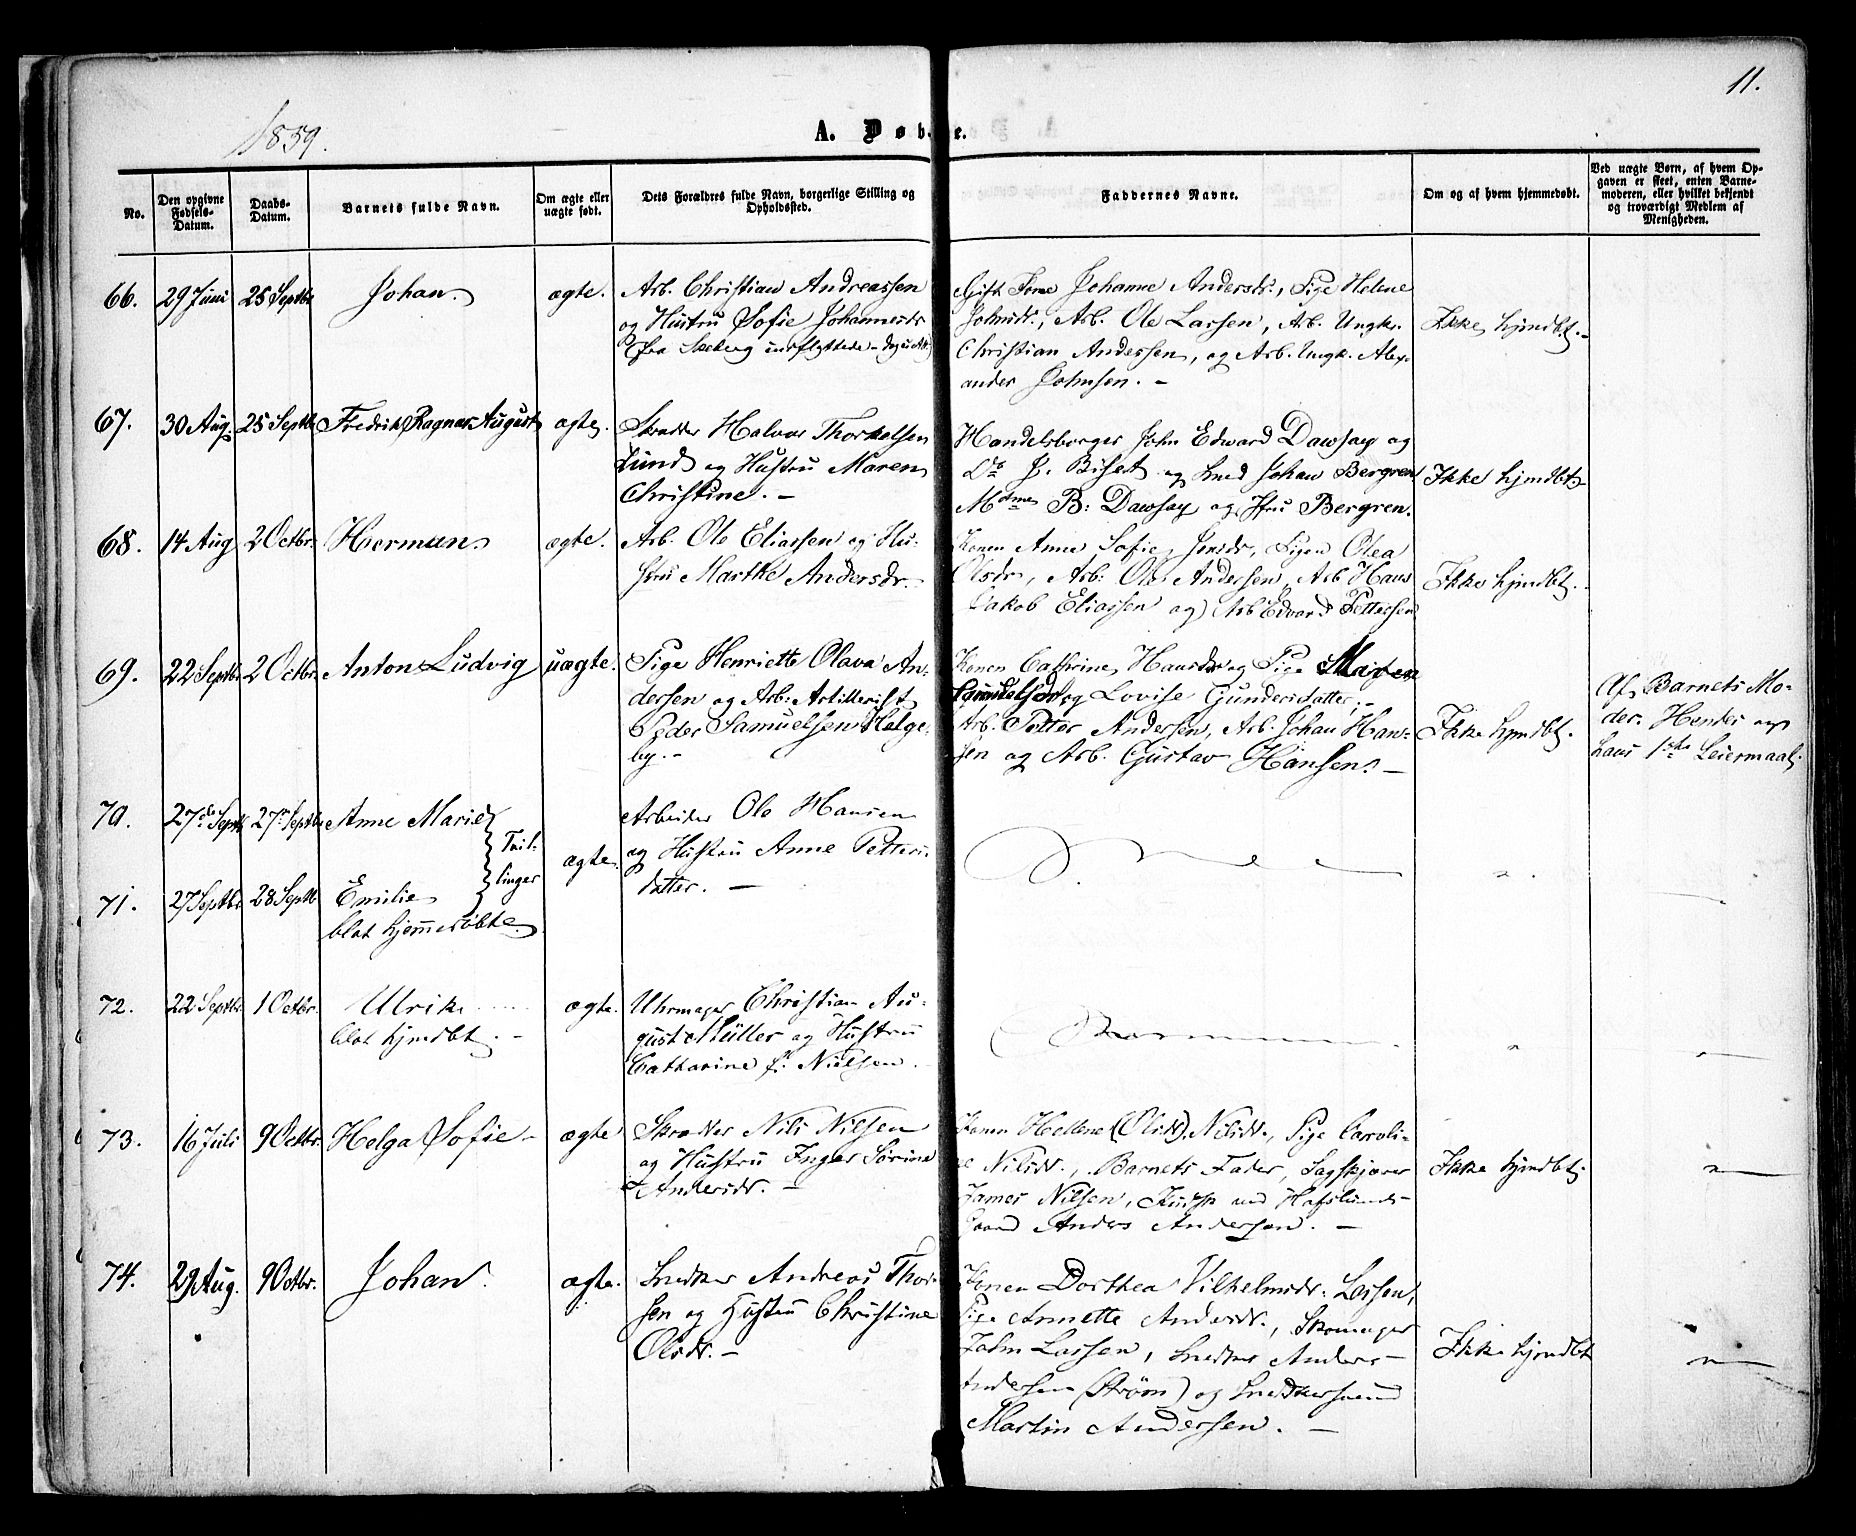 11.
1859.
A. Døbte.
No.
Den opgivne Fødsels-Datum.
Daabs-Datum.
Barnets fulde Navn.
Om ægte eller uægte født.
Dets Forældres fulde Navn, borgerlige Stilling og Opholdssted.
Faddernes Navne.
Om og af hvem hjemmedøbt.
Ved uægte Børn, af hvem Opgaven er skeet, enten Barnemoderen, eller hvilket bekjendt og troværdigt Medlem af Menigheden.
66. 29 Juni 25 Septbr Johan. ægte.
Arb. Christian Andreassen
og Hustru Sofie Johannesdr
(fra Seeberg
Gift Kone Johanne Andersdr., Pige Helene
Johnsdr., Arb. Ole Larsen, Arb. Ungk.
Christian Andersen, og Arb. Ungk. Alex-
ander Johnsen. –
Ikke hjmdbt. –
67. 30 Aug. 25 Septbr Fredrik Ragnar August ægte.
Skrædder Halvor Thorkelsen
Lund og Hustru Maren
Christine. –
Handelsborger John Edward Dawsay og
Do J. Biset og Smed Johan Bergren
Mdme B: Dawsay og Jfru Bergren.
Ikke hjmdbt
68. 14 Aug 2 Octbr. Herman ægte.
Arb. Ole Eliassen og Hu-
stru Marthe Andersdr. –
Konen Anne Sofie Jensdr, Pigen Olea
Olsdr, Arb: Ole Andersen, Arb Hans
Jakob Eliassen og Arb Edvard Pettersen
Ikke hjmdbt.
69. 22 Septbr 2 Octbr. Anton Ludvig uægte.
Pige Henriette Olava An-
dersen og Arb. Artillerist
Peder Samuelsen Helge-
by. –
Konen Cathrine Hansdr og Pige Maren
Samuelsen og Lovise Gundersdatter, –
Arb. Petter Andersen, Arb. Johan Han-
sen og Arb. Gustav Hansen. –
Ikke hjmdbt.
Af Barnets Mo-
der. Hendes og
hans 1ste Leiermaal.
70. 27de Septbr 27 Septbr Anne Marie
Tvil-
linger
ægte.
Arbeider Ole Hansen
og Hustru Anne Petters-
datter. –
71. 27 Septbr 28 Septbr Emilie
blot hjemmedøbte
72. 22 Septbr. 1 Octbr. Ulrik ægte.
blot hjmdbt. –
Uhrmager Christian Au-
gust Müller og Hustru
Catharine f. Nielsen.
73. 16 Juli 9 Octbr. Helga Sofie – ægte
Skrædder Nils Nilsen
og Hustru Inger Sørine
Andersdr. –
Konen Hellene (Olsdr) Nilsdr., Pige Caroli-
ne Nilsdr., Barnets Fader, Sagskjærer
James Nilsen, Kudsk ved Hafslunds-
Gaard Anders Andersen. –
Ikke hjmdbt
74. 29 Aug. 9 Octbr. Johan. ægte.
Snedker Andreas Thor-
sen og Hustru Christine
Olsdr. –
Konen Dorthea Vilhelmsdr. Larsen,
Pige Annette Andersdr., Skomager
John Larsen, Snedker Anders
Andersen (Strøm) og Snedkersvend
Martin Andersen. –
Ikke hjmdbt